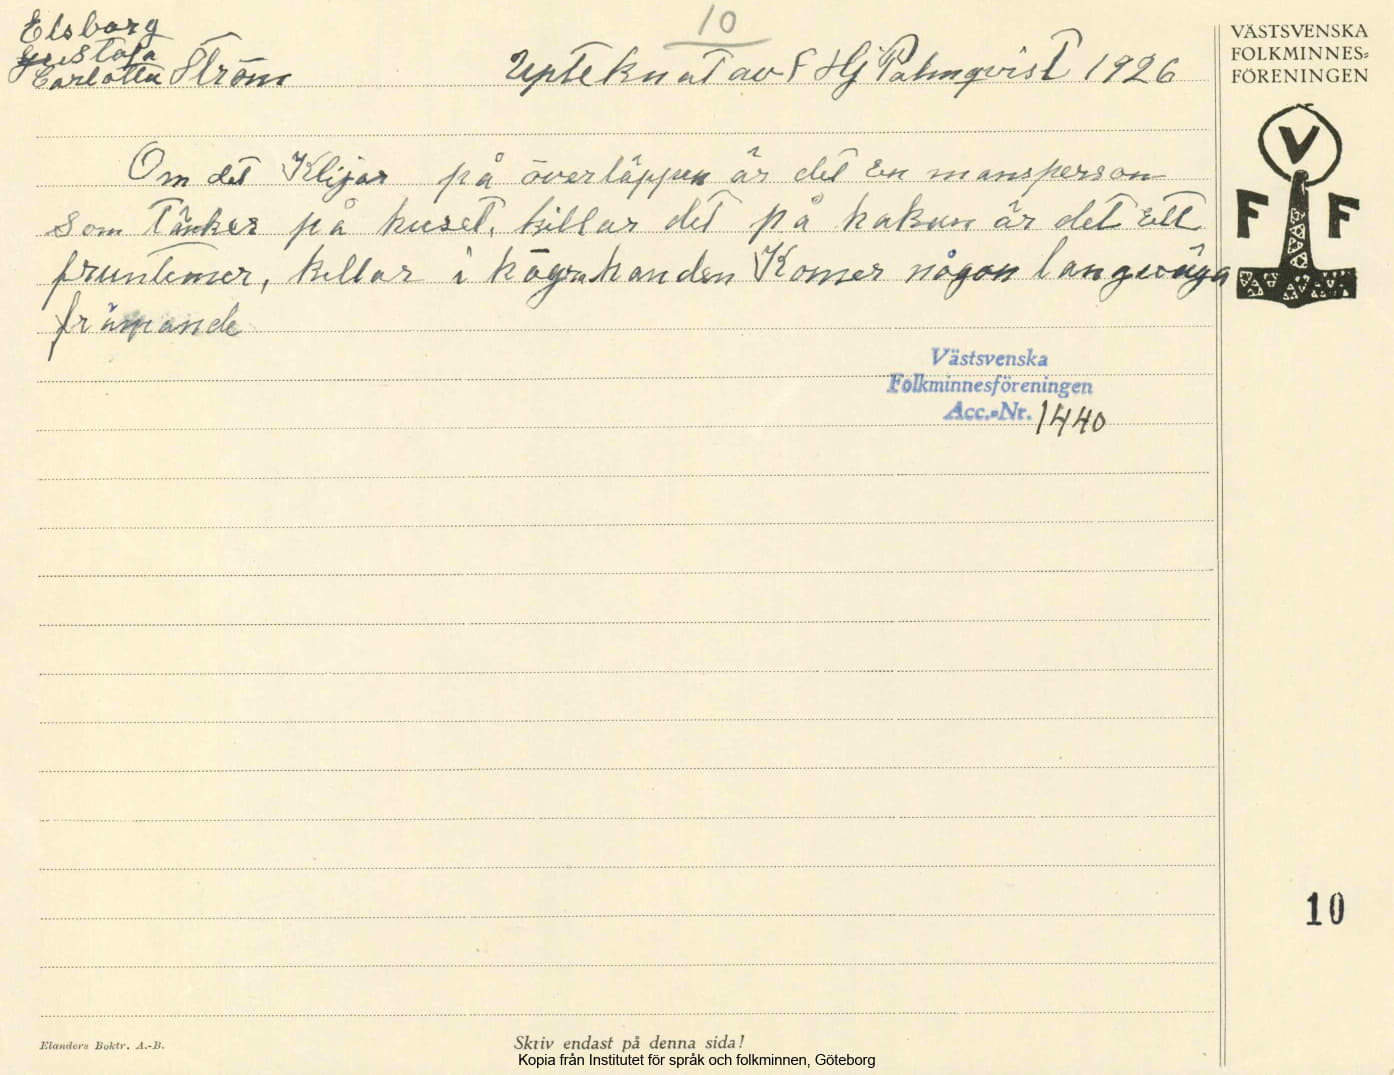 10
Elsborg
Gustafa
Carlotta Ström
Upteknat av F Hj Palmqvist 1926
VÄSTSVENSKA
FOLKMINNES-
FÖRENINGEN
V
F F
Om det Klijar på överläppen är det en mansperson
som tänker på huset, killar det på hakan är det ett
fruntimer, killar i högrahanden Komer någon langväga
främande
Västsvenska
Folkminnesföreningen
Acc.-Nr. 1440
10
Elanders Boktr. A.-B.
Skriv endast på denna sida!
Kopia från Institutet för språk och folkminnen, Göteborg